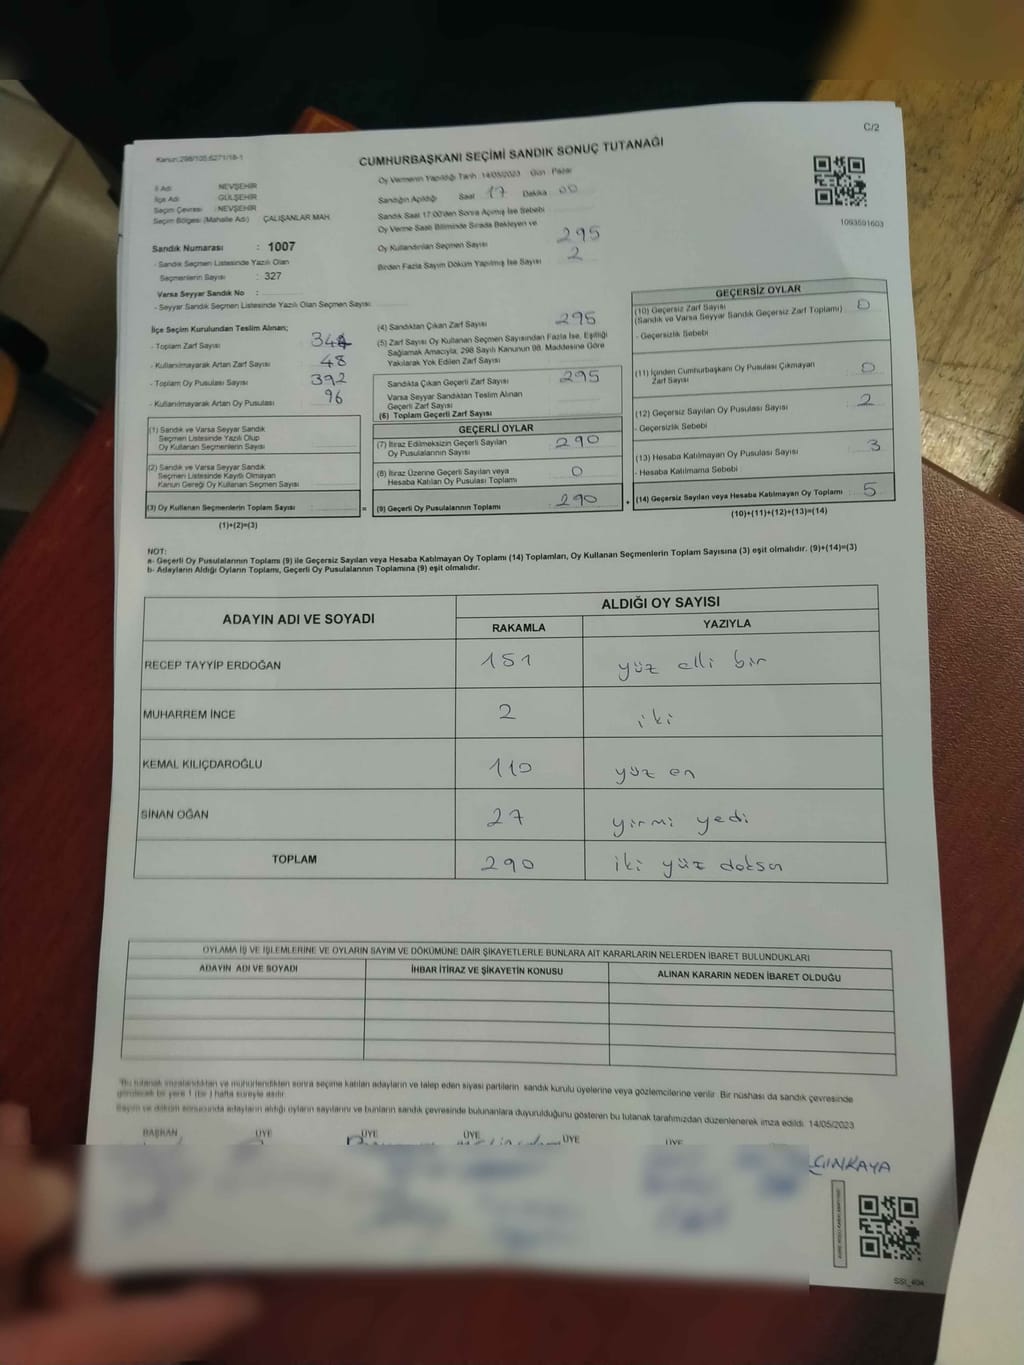 C/2
Kanun:298/105;6271/18-1
CUMHURBAŞKANI SEÇİMİ SANDIK SONUÇ TUTANAĞI
İl Adı : NEVŞEHİR
İlçe Adı : GÜLŞEHİR
Seçim Çevresi : NEVŞEHİR
Seçim Bölgesi (Mahalle Adı) : ÇALIŞANLAR MAH.
Sandık Numarası : 1007
- Sandık Seçmen Listesinde Yazılı Olan
Seçmenlerin Sayısı : 327
Varsa Seyyar Sandık No :
- Seyyar Sandık Seçmen Listesinde Yazılı Olan Seçmen Sayısı:
Oy Vermenin Yapıldığı Tarih 14/05/2023 Gün Pazar
Sandığın Açıldığı Saat 17 Dakika 00
Sandık Saat 17:00'den Sonra Açılmış İse Sebebi
Oy Verme Saati Bitiminde Sırada Bekleyen ve
Oy Kullandırılan Seçmen Sayısı 295
Birden Fazla Sayım Döküm Yapılmış İse Sayısı 2
1093591603
İlçe Seçim Kurulundan Teslim Alınan;
- Toplam Zarf Sayısı
- Kullanılmayarak Artan Zarf Sayısı 48
- Toplam Oy Pusulası Sayısı 392
- Kullanılmayarak Artan Oy Pusulası 96
(1) Sandık ve Varsa Seyyar Sandık
Seçmen Listesinde Yazılı Olup
Oy Kullanan Seçmenlerin Sayısı
(2) Sandık ve Varsa Seyyar Sandık
Seçmen Listesinde Kayıtlı Olmayan
Kanun Gereği Oy Kullanan Seçmen Sayısı
(3) Oy Kullanan Seçmenlerin Toplam Sayısı =
(1)+(2)=(3)
(4) Sandıktan Çıkan Zarf Sayısı 295
(5) Zarf Sayısı Oy Kullanan Seçmen Sayısından Fazla İse, Eşitliği
Sağlamak Amacıyla, 298 Sayılı Kanunun 98. Maddesine Göre
Yakılarak Yok Edilen Zarf Sayısı
Sandıkta Çıkan Geçerli Zarf Sayısı 295
Varsa Seyyar Sandıktan Teslim Alınan
Geçerli Zarf Sayısı
(6) Toplam Geçerli Zarf Sayısı
GEÇERLİ OYLAR
(7) İtiraz Edilmeksizin Geçerli Sayılan
Oy Pusulasının Sayısı 290
(8) İtiraz Üzerine Geçerli Sayılan veya
Hesaba Katılan Oy Pusulası Toplamı 0
(9) Geçerli Oy Pusulalarının Toplamı 290 +
GEÇERSİZ OYLAR
(10) Geçersiz Zarf Sayısı 0
(Sandık ve Varsa Seyyar Sandık Geçersiz Zarf Toplamı)
- Geçersizlik Sebebi
(11) İçinden Cumhurbaşkanı Oy Pusulası Çıkmayan
Zarf Sayısı 0
(12) Geçersiz Sayılan Oy Pusulası Sayısı 2
- Geçersizlik Sebebi
(13) Hesaba Katılmayan Oy Pusulası Sayısı 3
- Hesaba Katılmama Sebebi
(14) Geçersiz Sayılan veya Hesaba Katılmayan Oy Toplamı 5
(10)+(11)+(12)+(13)=(14)
NOT:
a- Geçerli Oy Pusulalarının Toplamı (9) ile Geçersiz Sayılan veya Hesaba Katılmayan Oy Toplamı (14) Toplamları, Oy Kullanan Seçmenlerin Toplam Sayısına (3) eşit olmalıdır. (9)+(14)=(3)
b- Adayların Aldığı Oyların Toplamı, Geçerli Oy Pusulalarının Toplamına (9) eşit olmalıdır.
ADAYIN ADI VE SOYADI ALDIĞI OY SAYISI
RAKAMLA YAZIYLA
RECEP TAYYİP ERDOĞAN 151 yüz elli bir
MUHARREM İNCE 2 iki
KEMAL KILIÇDAROĞLU 110 yüz on
SİNAN OĞAN 27 yirmi yedi
TOPLAM 290 iki yüz doksan
OYLAMA İŞ VE İŞLEMLERİNE VE OYLARIN SAYIM VE DÖKÜMÜNE DAİR ŞİKAYETLERLE BUNLARA AİT KARARLARIN NELERDEN İBARET BULUNDUKLARI
ADAYIN ADI VE SOYADI İHBAR İTİRAZ VE ŞİKAYETİN KONUSU ALINAN KARARIN NEDEN İBARET OLDUĞU
*Bu tutanak imzalandıktan ve mühürlendikten sonra seçime katılan adayların ve talep eden siyasi partilerin sandık kurulu üyelerine veya gözlemcilerine verilir. Bir nüshası da sandık çevresinde
görülecek bir yere 1 (bir) hafta süreyle asılır.
Sayım ve döküm sonucunda adayların aldığı oyların sayılarını ve bunların sandık çevresinde bulunanlara duyurulduğunu gösteren bu tutanak tarafımızdan düzenlenerek imza edildi. 14/05/2023
BAŞKAN ÜYE ÜYE ÜYE ÜYE ÜYE
SSI_404